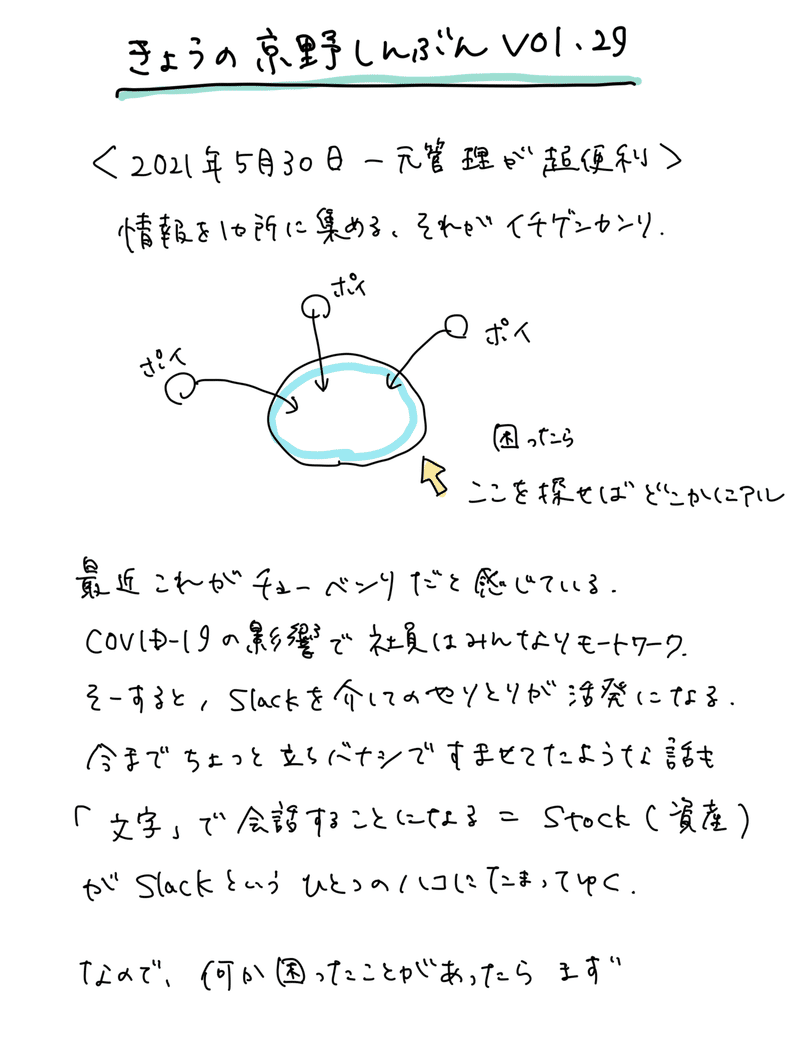 きょうの京野しんぶん VOl.29
＜2021年5月30日 一元管理が超便利＞
情報を1か所に集める、それがイチゲンカンリ.
ポイ
ポイ
ポイ
困ったら
ここを探せばどこかにアル
最近これがチョーベンリだと感じている.
COVID-19の影響で社員はみんなリモートワーク.
そーすると, Slackを介してのやりとりが活発になる.
今までちょっと立ちバナシですませてたような話も
「文字」で会話することになる = Stock (資産)
が Slackという ひとつのハコにたまってゆく.
なので、何か困ったことがあったら まず